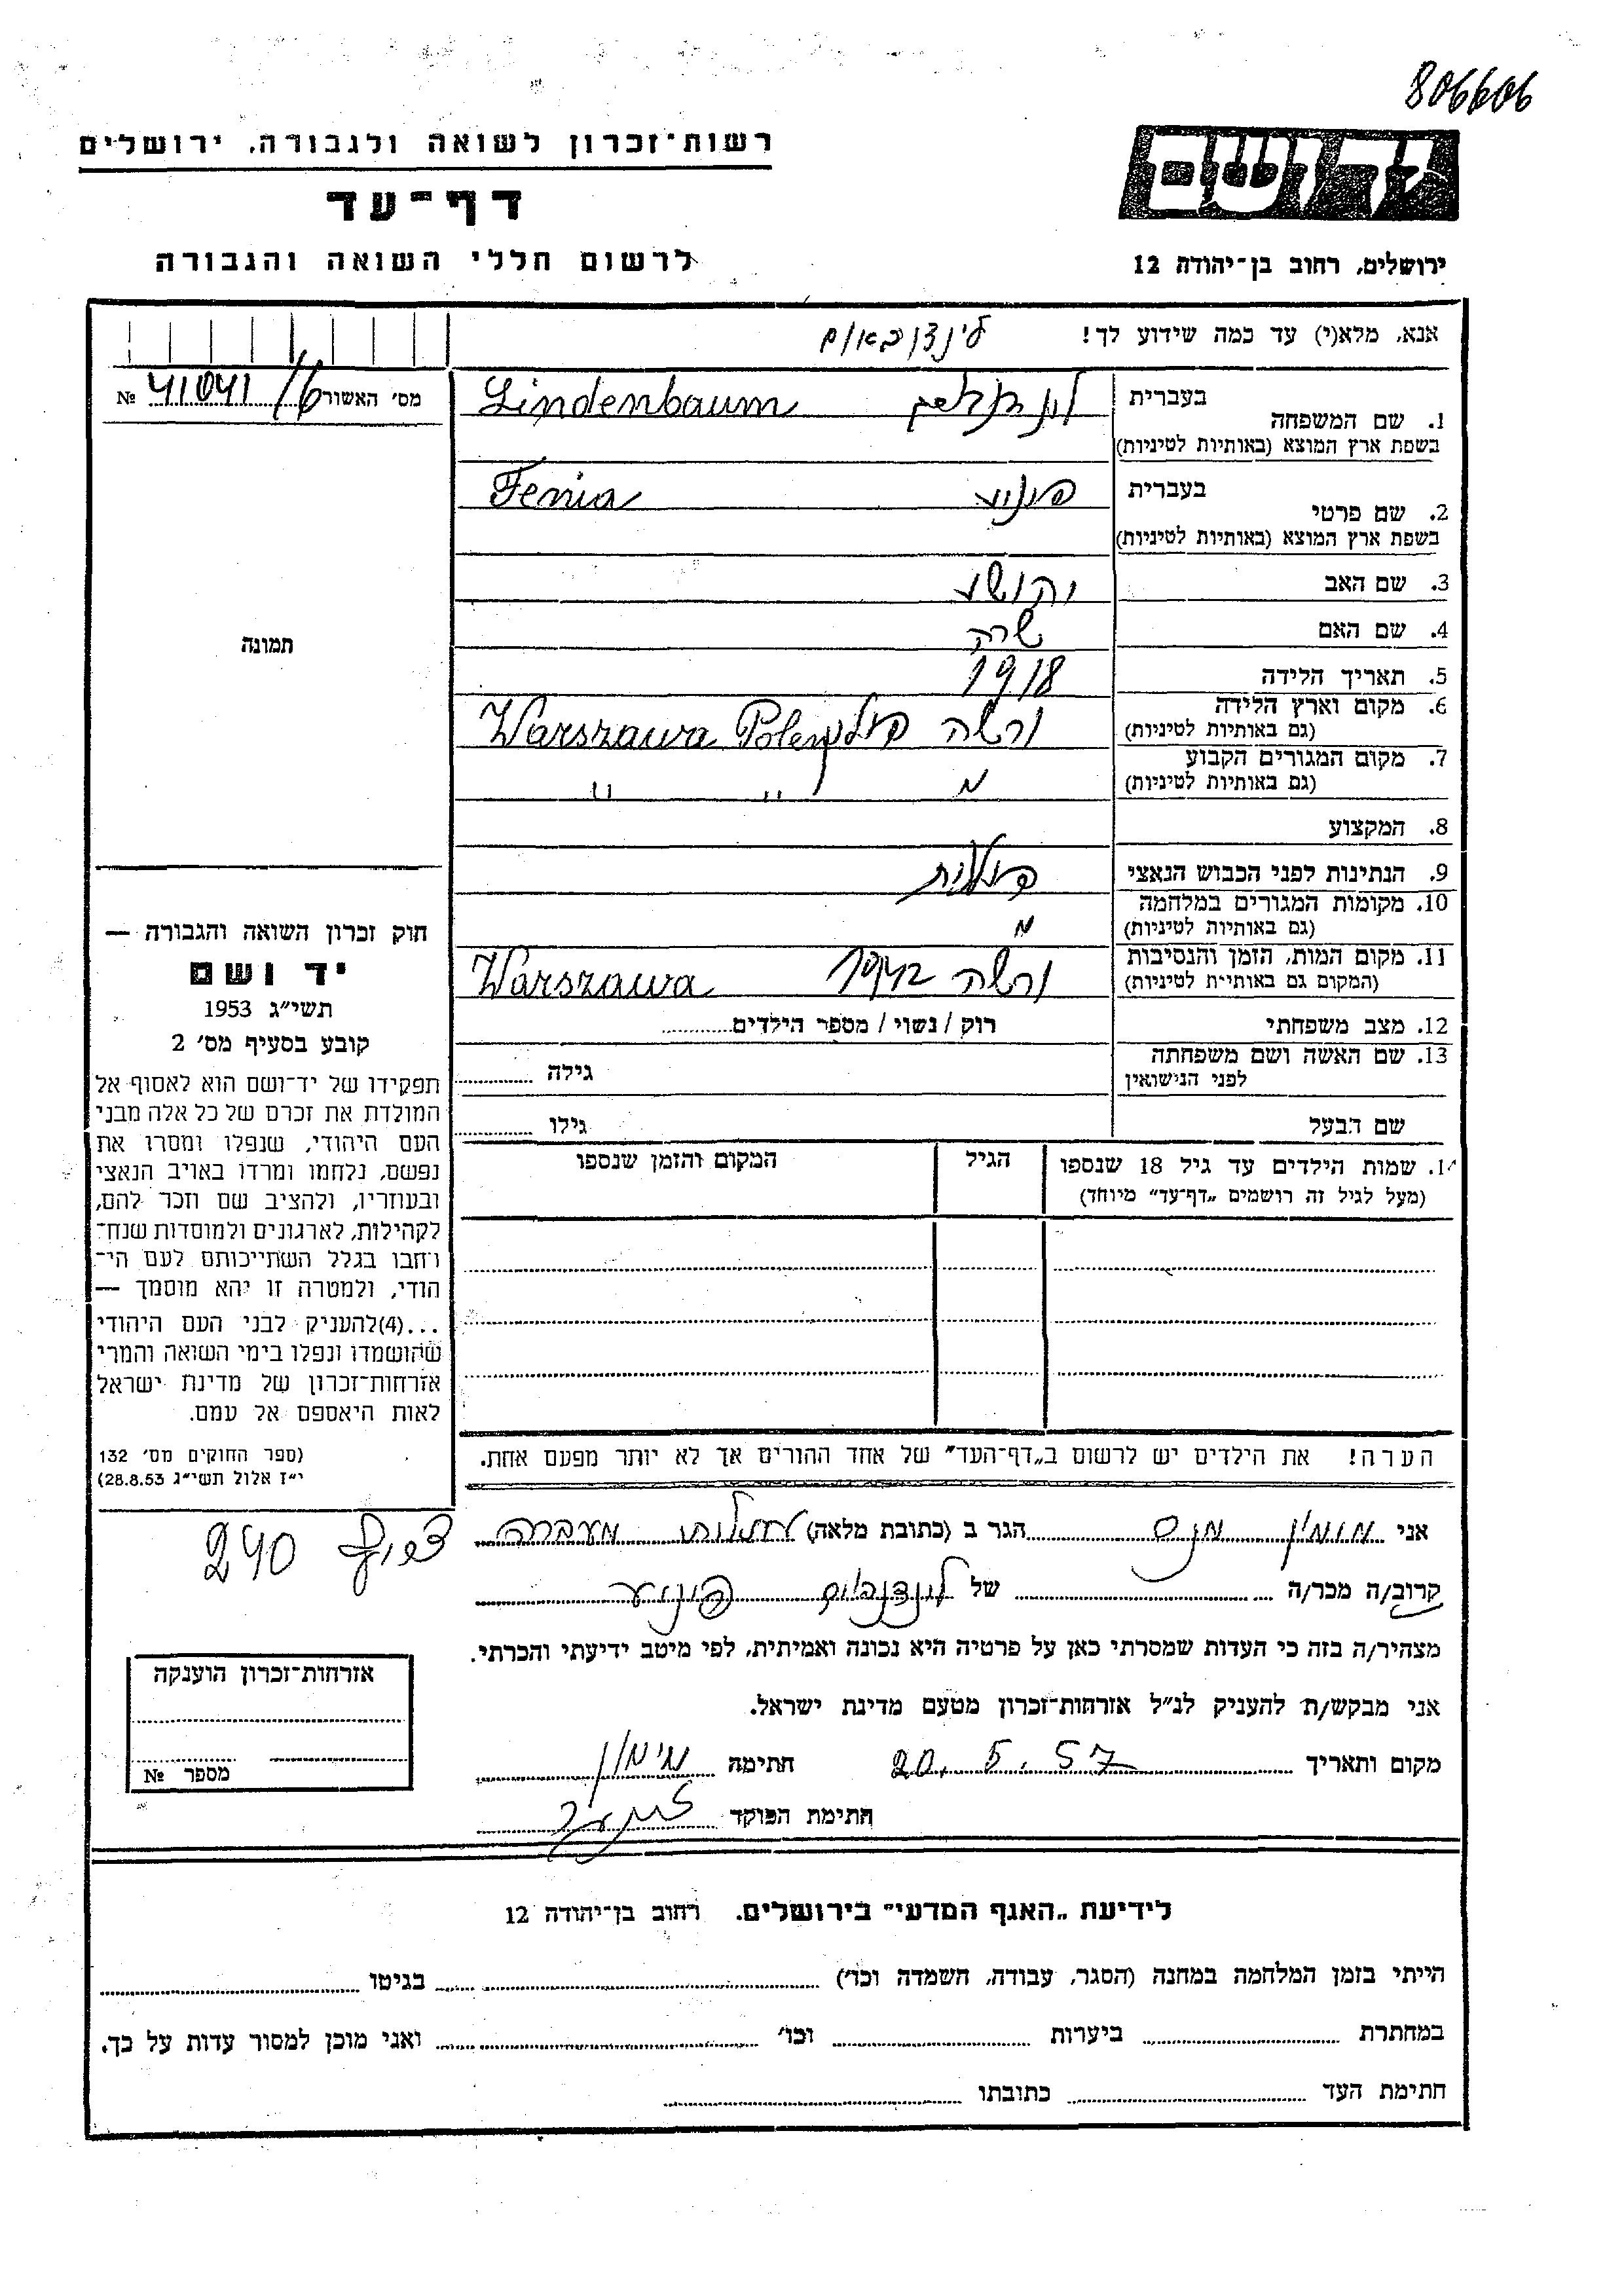 806606
יד ושם
רשות־זכרון לשואה ולגבורה, ירושלים
דף־עד
לרשום חללי השואה והגבורה
ירושלים, רחוב בן־יהודה 12
אנא, מלא(י) עד כמה שידוע לך!
לינדנבאום
מס׳ האשור 41041/6 №
1. שם המשפחה
בעברית
Lindenbaum
בשפת ארץ המוצא (באותיות לטיניות)
2. שם פרטי
בעברית פניע
Fenia
בשפת ארץ המוצא (באותיות לטיניות)
3. שם האב יהושע
4. שם האם שרה
5. תאריך הלידה 1918
6. מקום וארץ הלידה ורשה פולין Warszawa Polen
(גם באותיות לטיניות)
7. מקום המגורים הקבוע
(גם באותיות לטיניות) " "
8. המקצוע
9. הנתינות לפני הכבוש הנאצי פולנית
10. מקומות המגורים במלחמה
(גם באותיות לטיניות)
11. מקום המות, הזמן והנסיבות ורשה 1942 Warszawa
(המקום גם באותיות לטיניות)
12. מצב משפחתי רוק / נשוי / מספר הילדים
13. שם האשה ושם משפחתה
לפני הנישואין
גילה
שם הבעל גילו
14. שמות הילדים עד גיל 18 שנספו
(מעל לגיל זה רושמים „דף־עד״ מיוחד)
הגיל
המקום והזמן שנספו
תמונה
חוק זכרון השואה והגבורה —
יד ושם
תשי״ג 1953
קובע בסעיף מס׳ 2
תפקידו של יד־ושם הוא לאסוף אל
המולדת את זכרם של כל אלה מבני
העם היהודי, שנפלו ומסרו את
נפשם, נלחמו ומרדו באויב הנאצי
ובעוזריו, ולהציב שם וזכר להם,
לקהילות, לארגונים ולמוסדות שנח־
רחבו בגלל השתייכותם לעם הי־
הודי, ולמטרה זו יהא מוסמך —
...(4)להעניק לבני העם היהודי
שהושמדו ונפלו בימי השואה והמרי
אזרחות־זכרון של מדינת ישראל
לאות היאספם אל עמם.
(ספר החוקים מס׳ 132
י״ז אלול תשי״ג 28.8.53)
הערה! את הילדים יש לרשום ב„דף־העד״ של אחד ההורים אך לא יותר מפעם אחת.
אני מימון הגר ב (כתובת מלאה) מעברה
צריף 240
קרוב/ה מכר/ה של לינדנבוים פניע
מצהיר/ה בזה כי העדות שמסרתי כאן על פרטיה היא נכונה ואמיתית, לפי מיטב ידיעתי והכרתי.
אני מבקש/ת להעניק לנ״ל אזרחות־זכרון מטעם מדינת ישראל.
מקום ותאריך 20.5.57 חתימה מימון
חתימת הפוקד
אזרחות־זכרון הוענקה
מספר №
לידיעת „האגף המדעי״ בירושלים. רחוב בן־יהודה 12
הייתי בזמן המלחמה במחנה (הסגר, עבודה, השמדה וכו׳) בגיטו
במחתרת ביערות וכו׳ ואני מוכן למסור עדות על כך.
חתימת העד כתובתו